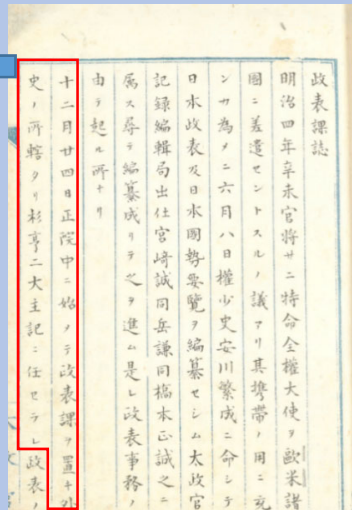 政表課誌
明治四年辛未官将サニ特命全権大使ヲ歐米諸
國ニ差遣セントスルノ議アリ其携帯ノ用ニ充
ンカ為メニ六月八日權少史安川繁成ニ命シテ
日本政表及日本國勢要覧ヲ編纂セシム太政官
記録編輯局出仕宮崎誠同岳謙同橋本正誠之ニ
属ス尋テ編纂成リテ之ヲ進ム是レ政表事務ノ
由テ起ル所ナリ
十二月廿四日正院中ニ始メテ政表課ヲ置キ外
史ノ所轄タリ杉亨二大主記ニ任セラレ政表ノ